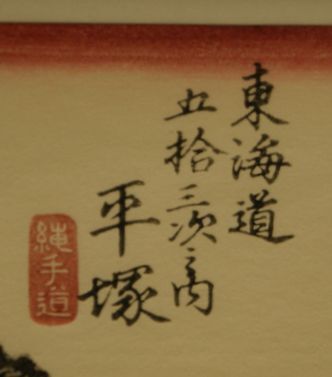 東海道
五拾三次之内
平塚
縄手道